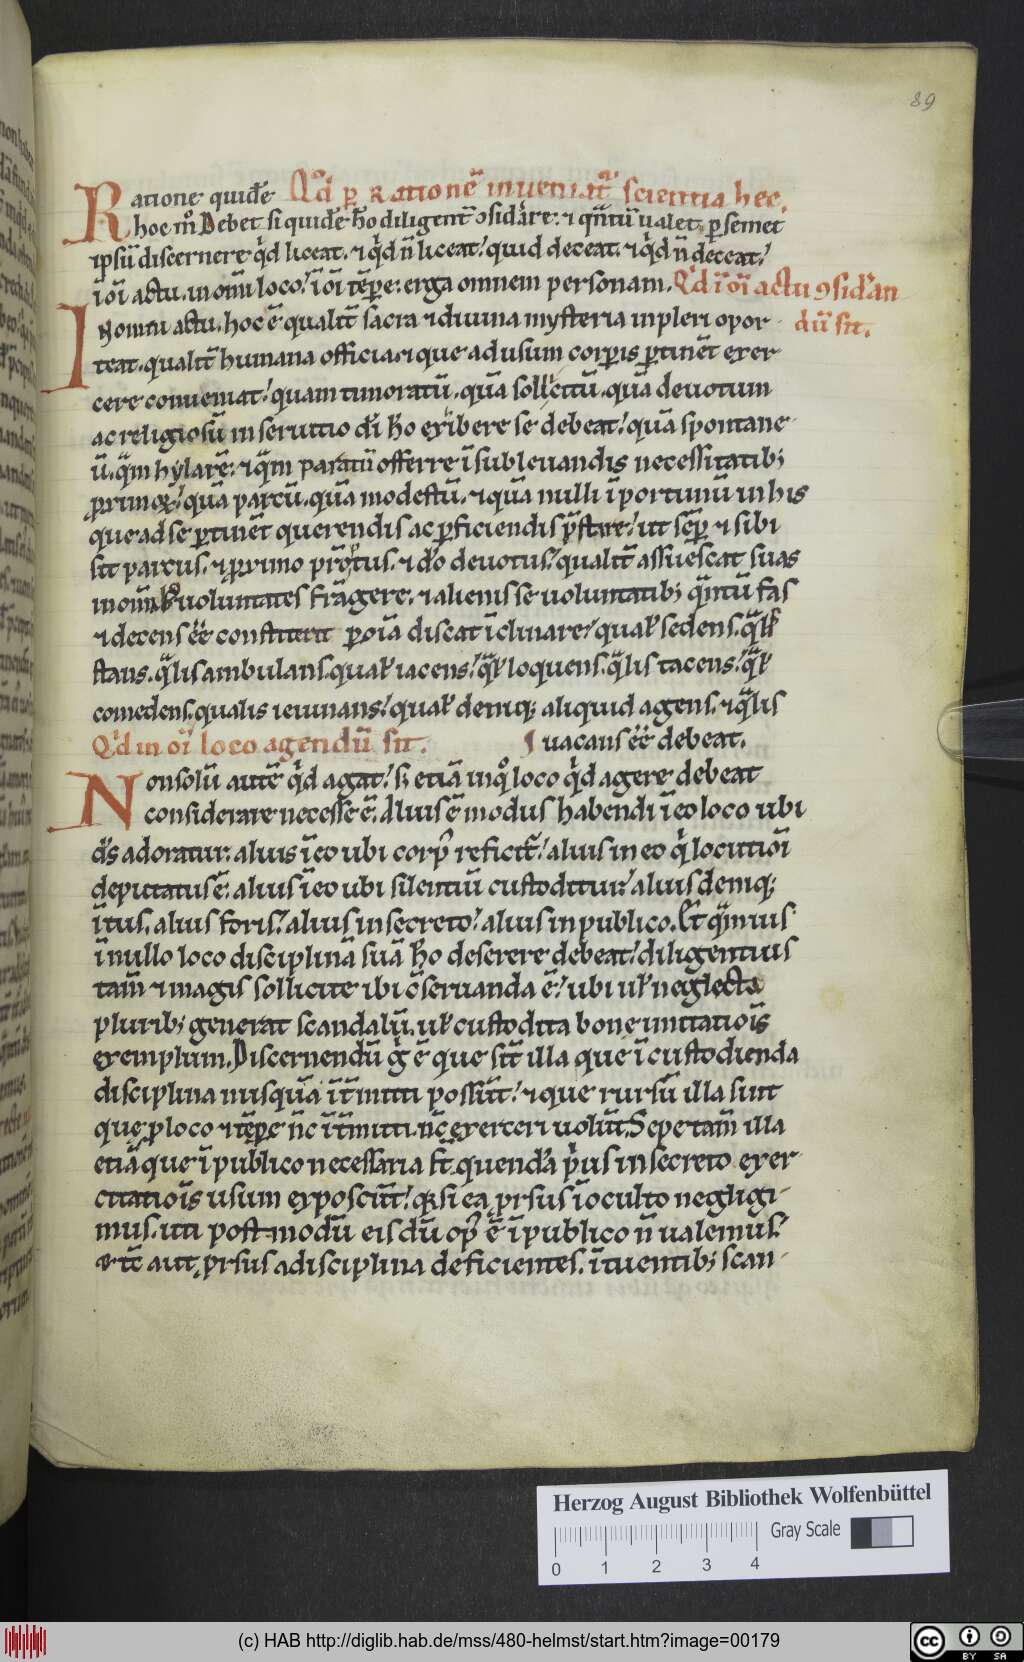 89
Ratione quidē Qd̾ p̲ Rationē inueniat᷑ scientia hec.
hoc m͛ Debet siquidē hō diligent̾ ꝯsid̾are: ⁊ qn̄tū ualet, p̲ semet
ip̄sū discernere qd̾ liceat. ⁊ qd̾ n̄ liceat! quid deceat. ⁊ qd̾ n̄ deceat!
ī oī actu. in om̄i loco! ī oī tēpe: erga omnem personam. Qd̾ ī oī actu ꝯsid̾an
In omni actu. hoc ē qualit̾ sacra ⁊ diuina mysteria inpleri opor- dū sit.
teat. qualit̾ humana officia. ⁊ que ad usum corp̲is p̲tinēt exer
cere conueniat! quam timoratū. quā sollicitū. quā deuotum
ac religiosū in seruitio dī hō exibere se debeat! quā spontane-
ū. qm̄ hylarē: ⁊ qm̄ paratū offerre ī subleuandis necessitatib;
proximoꝝ! quā parcū. quā modestū. ⁊ quā nulli īportunū in his
que ad se p̲tinēt querendis ac p̲ficiendis p̄stare! ut sēp̲ ⁊ sibi
sit parcus. ⁊ proximo prōtus. ⁊ dō deuotus! qualit̾ assuescat suas
in om̄ib; uoluntates frāgere. ⁊ alienis se uoluntatib; qn̄tū fas
⁊ decens ēē constiterit p̲ oīa discat īclinare! qual̾ sedens. ql̄
stans. qlis ambulans. qual̾ iacens! ql̄ loquens. qlis tacens! ql̄
comedens. qualis ieiunans! qual̾ deniq; aliquid agens. ⁊ qlis
Qd̾ in oī loco agendū sit. uacans ēē debeat.
Non solū autē qd̾ agat! s; etiā inq͛ loco qd̾ agere debeat
considerare necesse ē. Alius ē modus habendi ī eo loco ubi
ds̄ adoratur: alius ī eo ubi corp̾ reficit᷑! alius in eo q͛ locutiōi
deputatus ē: alius ī eo ubi silentiū custoditur! alius deniq;
ītus. alius foris! alius in secreto! alius in publico. Et qm̄uis
ī nullo loco disciplinā suā hō deserere debeat! diligentius
tam̄ ⁊ magis sollicite ibi ōseruanda ē! ubi ul̾ neglecta
plurib; generat scandalū. ul̾ custodita bone imitatiōis
exemplum. Discernendū g͛ ē que sit̄ illa que ī custodienda
disciplina nusquā īt̄mitti possūt! ⁊ que rursū illa sunt
que p̲ loco ⁊ tēpe nc̄ īt̄mitti. nc̄ exerceri uolūt. Sepe tam̄ illa
etiā que ī publico necessaria st̄. quendā pius in secreto exer-
citatiōis usum exposcūt! q̲ si ea prsus ī oculto negligi-
mus. uti postmodū eis dū op̾ ē ī publico n̄ ualemus!
⁊ tc̄ aut prsus a disciplina deficientes. ītuentib; scan-
Herzog August Bibliothek Wolfenbüttel
Gray Scale
0 1 2 3 4
(c) HAB http://diglib.hab.de/mss/480-helmst/start.htm?image=00179
cc BY SA